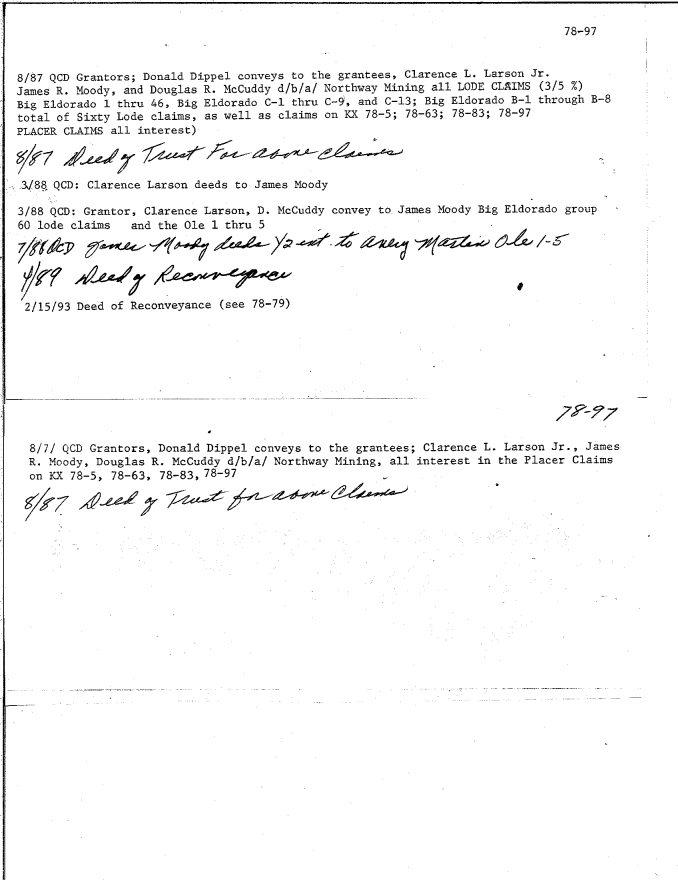 78-97
8/87 QCD Grantors; Donald Dippel conveys to the grantees, Clarence L. Larson Jr.
James R. Moody, and Douglas R. McCuddy d/b/a/ Northway Mining all LODE CLAIMS (3/5 %)
Big Eldorado 1 thru 46, Big Eldorado C-1 thru C-9, and C-13; Big Eldorado B-1 through B-8
total of Sixty Lode claims, as well as claims on KX 78-5; 78-63; 78-83; 78-97
PLACER CLAIMS all interest)
8/87 Deed of Trust For above Claims
3/88 QCD: Clarence Larson deeds to James Moody
3/88 QCD: Grantor, Clarence Larson, D. McCuddy convey to James Moody Big Eldorado group
60 lode claims and the Ole 1 thru 5
7/88 QCD James Moody deeds 1/2 int. to Avery Martin Ole 1-5
4/89 Deed of Reconveyance
2/15/93 Deed of Reconveyance (see 78-79)
78-97
8/7/ QCD Grantors, Donald Dippel conveys to the grantees; Clarence L. Larson Jr., James
R. Moody, Douglas R. McCuddy d/b/a/ Northway Mining, all interest in the Placer Claims
on KX 78-5, 78-63, 78-83, 78-97
8/87 Deed of Trust for above Claims